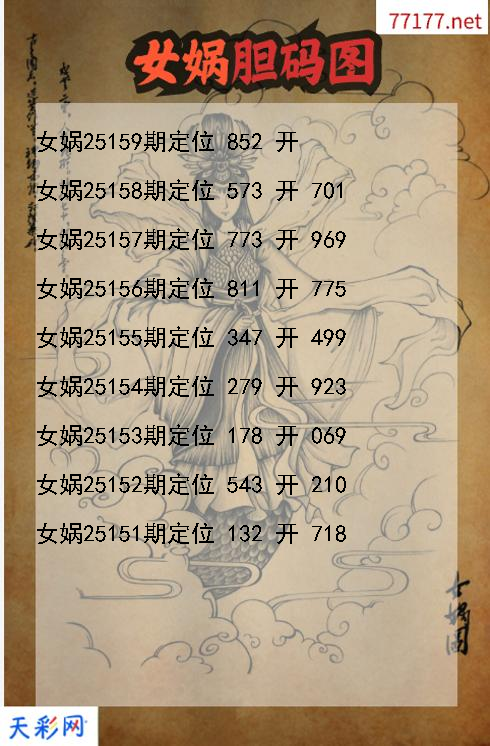 77177.net
女娲胆码图
女娲25159期定位 852 开
女娲25158期定位 573 开 701
女娲25157期定位 773 开 969
女娲25156期定位 811 开 775
女娲25155期定位 347 开 499
女娲25154期定位 279 开 923
女娲25153期定位 178 开 069
女娲25152期定位 543 开 210
女娲25151期定位 132 开 718
女娲图
天彩网